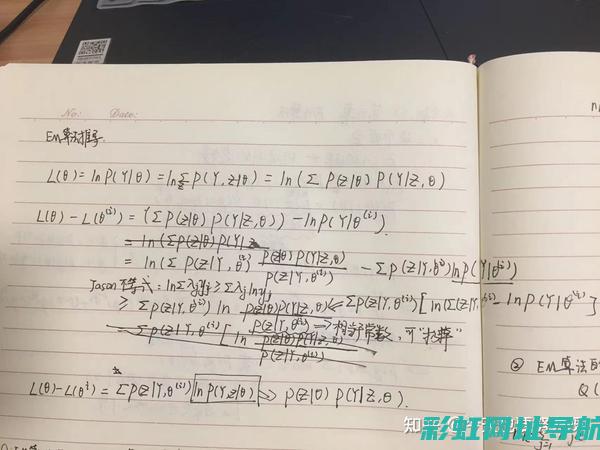 No: Date:
EM算法推导
L(θ) = ln P(Y|θ) = ln Σ_Z P(Y,Z|θ) = ln(Σ P(Z|θ) P(Y|Z,θ)
L(θ) - L(θ^(i)) = (Σ P(Z|θ) P(Y|Z,θ)) - ln P(Y|θ^(i))
= ln(Σ P(Z|θ) P(Y|Z
= ln(Σ P(Z|Y,θ^(i)) P(Z|θ) P(Y|Z,θ) / P(Z|Y,θ^(i)) - Σ P(Z|Y,θ^(i)) ln P(Y|θ^(i))
Jason不等式: ln Σ λj yj ≥ Σ λj ln yj
≥ Σ P(Z|Y,θ^(i)) ln P(Z|θ) P(Y|Z,θ) / P(Z|Y,θ^(i)) Σ P(Z|Y,θ^(i)) [ln(Σ(Z|Y,θ^(i) - ln P(Y|θ^(i)]
⇒ 相当于常数, 可“抹掉”
= Σ P(Z|Y,θ^(i)) [ln P(Z|θ) P(Y|Z,θ) / P(Z|Y,θ^(i))
L(θ) - L(θ^i) = Σ P(Z|Y,θ^(i)) ln P(Y,Z|θ) ⇒ P(Z|θ) P(Y|Z,θ).
② EM算法的
Q(
j=1
知乎
彩虹网址导航